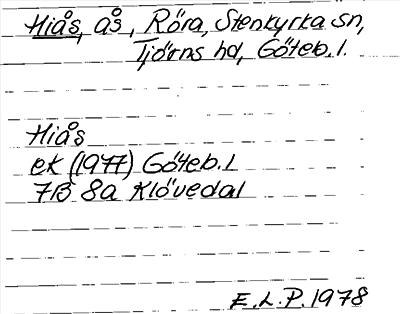 Hiås, ås, Röra, Stenkyrka sn,
Tjörns hd, Göteb. l.
Hiås
ek (1977) Göteb. l
7B 8a Klövedal
E.L.P. 1978